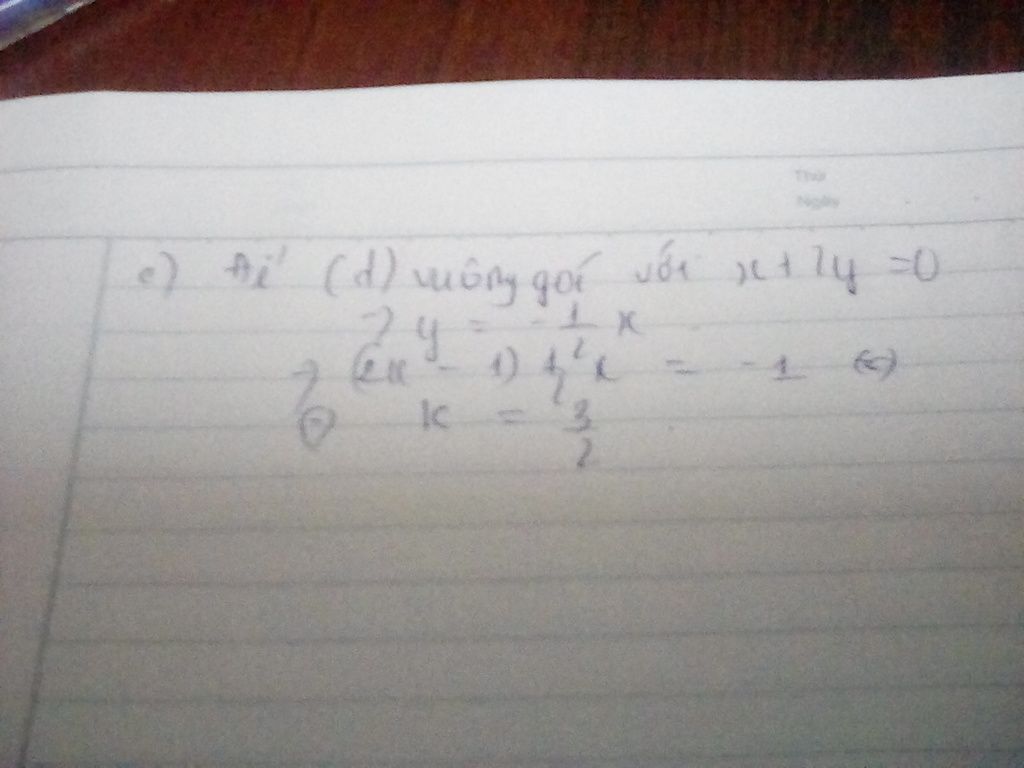 Thứ
Ngày
c) Để (d) vuông goí với x + 2y = 0
→ y = -1/2 x
→ (2k - 1) 1/2 x = -1 (=)
(=) k = 3/2